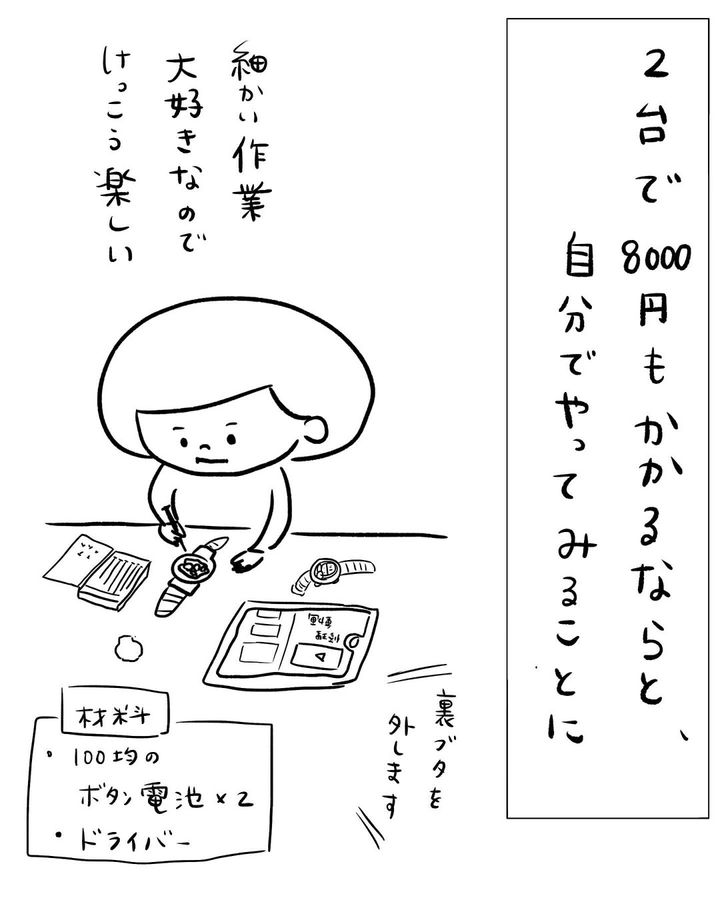 2台で8000円もかかるならと、
自分でやってみることに
細かい作業
大好きなので
けっこう楽しい
裏ブタを
外します
材料
・100均の
ボタン電池×2
・ドライバー